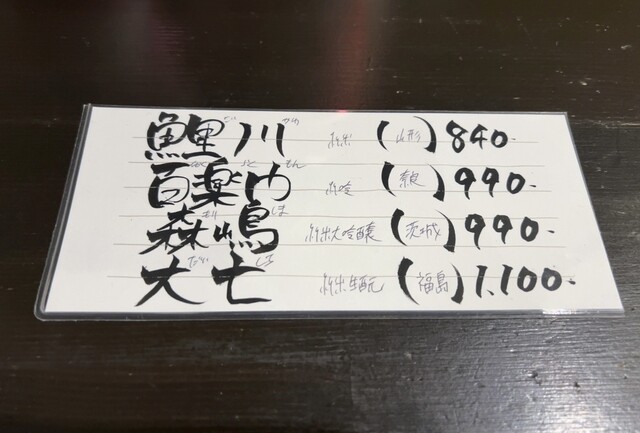 鯉川 こいかわ 純米 (山形) 840-
百楽門 ひゃくらくもん 純吟 (奈良) 990-
森嶋 もりしま 純米大吟醸 (茨城) 990-
大七 だいしち 純米生酛 (福島) 1,100-